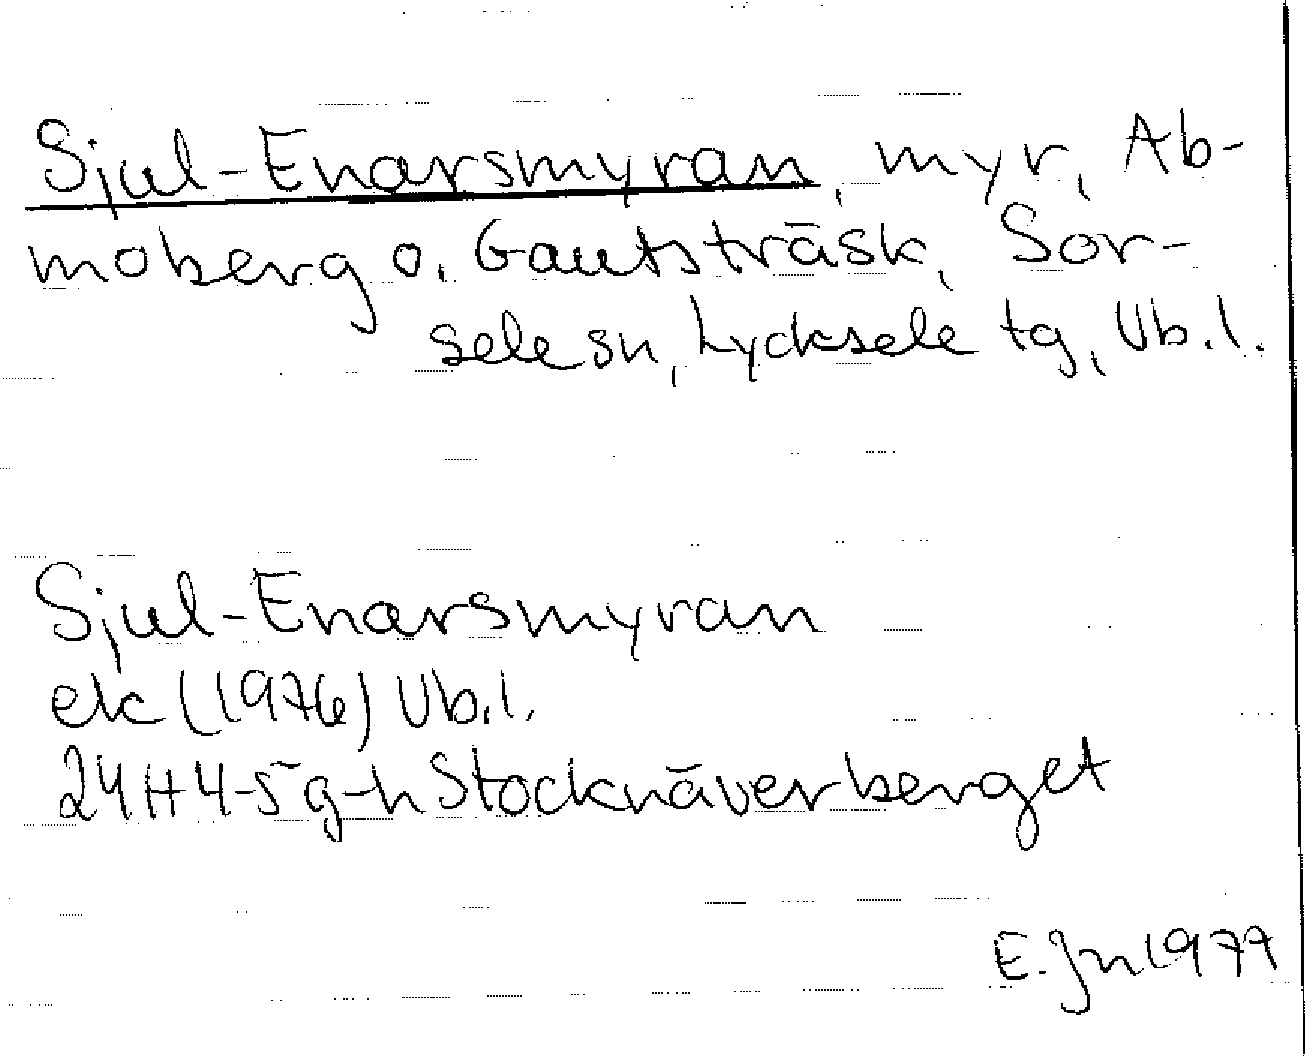 Sjul-Enarsmyran, myr, Ab-
moberg o. Gautsträsk, Sor-
sele sn, Lycksele tg, Vb.l.
Sjul-Enarsmyran
ek (1976) Vb.l.
24H 4-5 g-h Stocknäverberget
E. Jn 1979